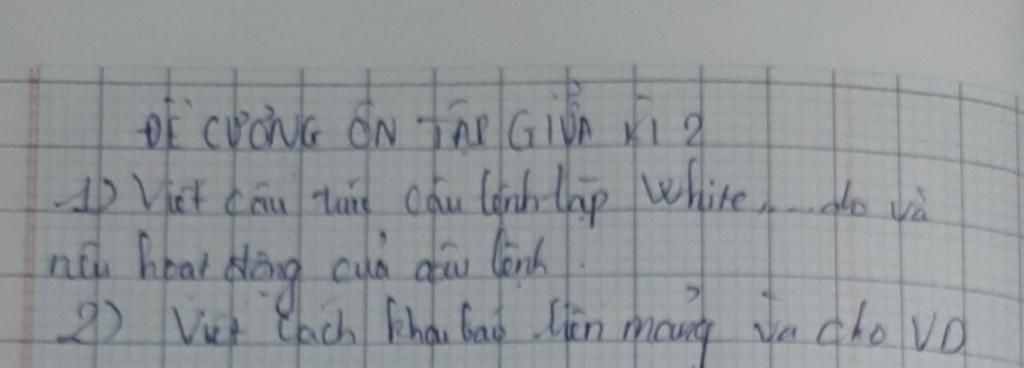 ĐỀ CƯƠNG ÔN TẬP GIỮA KÌ 2
1) Viết câu trúc câu lệnh lặp White....do và
nêu hoạt động của câu lệnh.
2) Viết cách khai báo biến mảng và cho VD